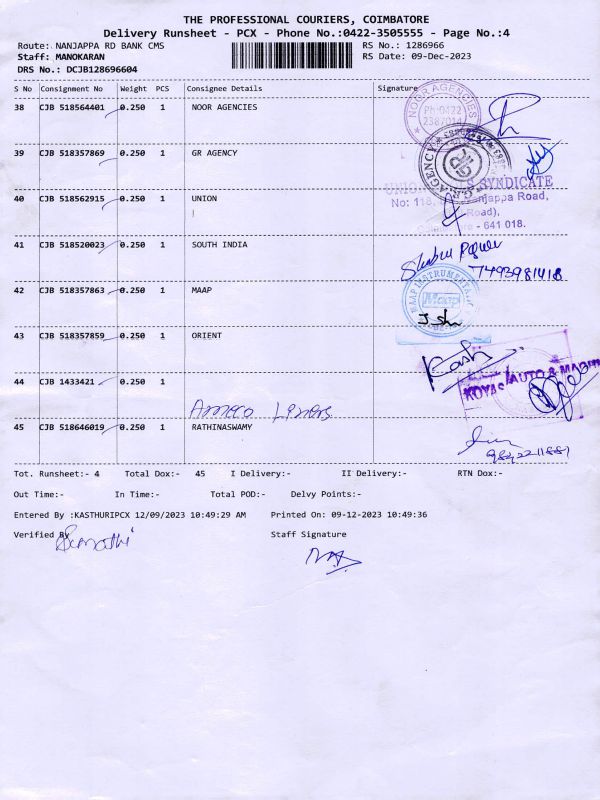 THE PROFESSIONAL COURIERS, COIMBATORE
Delivery Runsheet - PCX - Phone No.:0422-3505555 - Page No.:4
Route: NANJAPPA RD BANK CMS RS No.: 1286966
Staff: MANOKARAN RS Date: 09-Dec-2023
DRS No.: DCJB128696604
S No Consignment No Weight PCS Consignee Details Signature
38 CJB 518564401 0.250 1 NOOR AGENCIES
NOOR AGENCIES
Ph:0422
39 CJB 518357869 0.250 1 GR AGENCY
G.R.AGENCY
40 CJB 518562915 0.250 1 UNION
SYNDICATE
No: 118, Road,
Road),
- 641 018.
41 CJB 518520023 0.250 1 SOUTH INDIA
42 CJB 518357863 0.250 1 MAAP
MAAP INSTRUMENTS
Maap
43 CJB 518357859 0.250 1 ORIENT
44 CJB 1433421 0.250 1
KOVAS AUTO &
45 CJB 518646019 0.250 1 RATHINASWAMY
Tot. Runsheet:- 4 Total Dox:- 45 I Delivery:- II Delivery:- RTN Dox:-
Out Time:- In Time:- Total POD:- Delvy Points:-
Entered By :KASTHURIPCX 12/09/2023 10:49:29 AM Printed On: 09-12-2023 10:49:36
Verified By Staff Signature